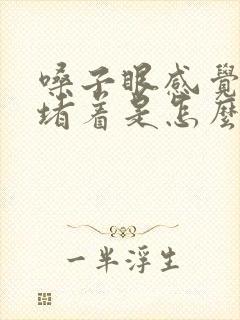 嗓子眼感覺
堵着是怎麼
一半浮生